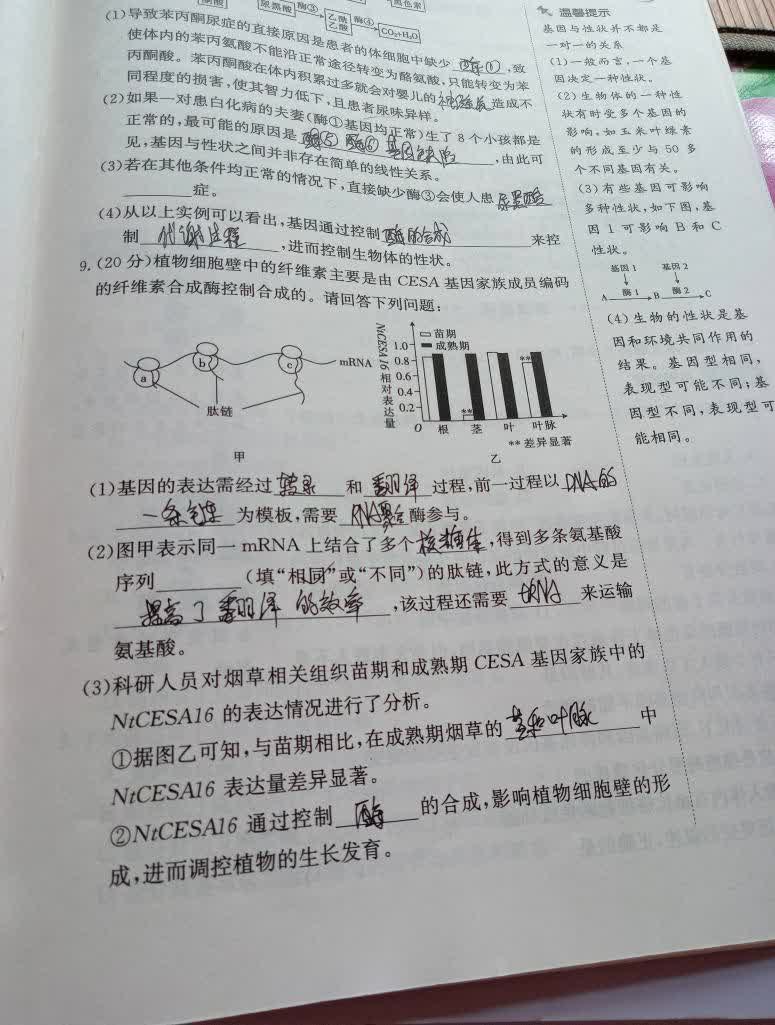 尿黑酸 酶③ 乙酰乙酸 酶④ CO₂+H₂O
黑色素
(1)导致苯丙酮尿症的直接原因是患者的体细胞中缺少 酶① ,致
使体内的苯丙氨酸不能沿正常途径转变为酪氨酸,只能转变为苯
丙酮酸。苯丙酮酸在体内积累过多就会对婴儿的神经系统造成不
同程度的损害,使其智力低下,且患者尿味异样。
(2)如果一对患白化病的夫妻(酶①基因均正常)生了8个小孩都是
正常的,最可能的原因是 酶⑤ 酶⑥ ,由此可
见,基因与性状之间并非存在简单的线性关系。
(3)若在其他条件均正常的情况下,直接缺少酶③会使人患 尿黑酸
症。
(4)从以上实例可以看出,基因通过控制 酶的合成 来控
制 代谢过程 ,进而控制生物体的性状。
9.(20分)植物细胞壁中的纤维素主要是由CESA基因家族成员编码
的纤维素合成酶控制合成的。请回答下列问题:
a
b
c
mRNA
肽链
甲
NtCESA16相对表达量
苗期
成熟期
1.0
0.8
0.6
0.4
0.2
0
**
**
根 茎 叶 叶脉
**差异显著
乙
(1)基因的表达需经过 转录 和 翻译 过程,前一过程以 DNA的
一条链 为模板,需要 RNA聚合 酶参与。
(2)图甲表示同一mRNA上结合了多个 核糖体 ,得到多条氨基酸
序列 (填“相同”或“不同”)的肽链,此方式的意义是
提高了翻译的效率 ,该过程还需要 tRNA 来运输
氨基酸。
(3)科研人员对烟草相关组织苗期和成熟期CESA基因家族中的
NtCESA16的表达情况进行了分析。
①据图乙可知,与苗期相比,在成熟期烟草的 茎和叶脉 中
NtCESA16表达量差异显著。
②NtCESA16通过控制 酶 的合成,影响植物细胞壁的形
成,进而调控植物的生长发育。
温馨提示
基因与性状并不都是
一对一的关系
(1)一般而言,一个基
因决定一种性状。
(2)生物体的一种性
状有时受多个基因的
影响,如玉米叶绿素
的形成至少与50多
个不同基因有关。
(3)有些基因可影响
多种性状,如下图,基
因1可影响B和C
性状。
基因1 基因2
A 酶1 B 酶2 C
(4)生物的性状是基
因和环境共同作用的
结果。基因型相同,
表现型可能不同;基
因型不同,表现型可
能相同。